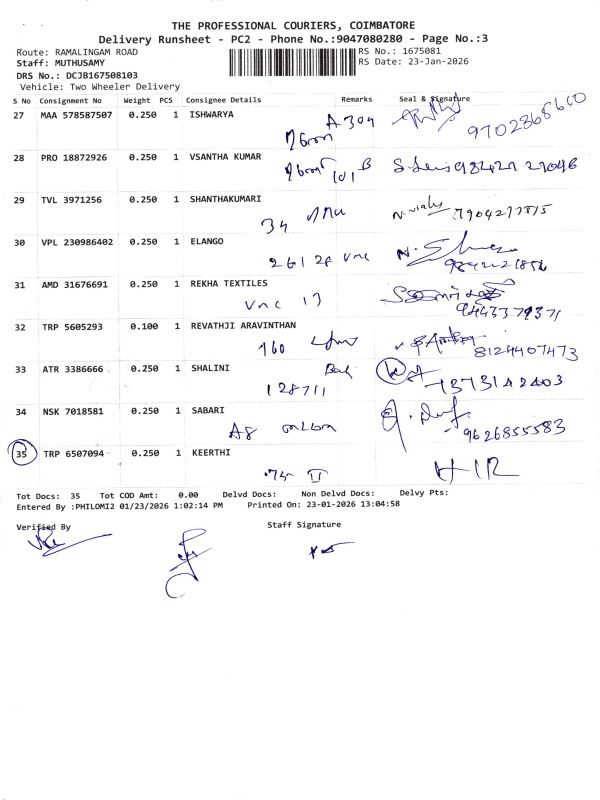 THE PROFESSIONAL COURIERS, COIMBATORE
Delivery Runsheet - PC2 - Phone No.:9047080280 - Page No.:3
Route: RAMALINGAM ROAD
RS No.: 1675081
Staff: MUTHUSAMY
RS Date: 23-Jan-2026
DRS No.: DCJB167508103
Vehicle: Two Wheeler Delivery
S No Consignment No Weight PCS Consignee Details Remarks Seal & Signature
27 MAA 578587507 0.250 1 ISHWARYA
A 304
9702368660
28 PRO 18872926 0.250 1 VSANTHA KUMAR
101 B
29 TVL 3971256 0.250 1 SHANTHAKUMARI
34
30 VPL 230986402 0.250 1 ELANGO
31 AMD 31676691 0.250 1 REKHA TEXTILES
vnc 13
32 TRP 5605293 0.100 1 REVATHJI ARAVINTHAN
160
8124407473
33 ATR 3386666 0.250 1 SHALINI
128711
34 NSK 7018581 0.250 1 SABARI
A8
9626855583
35 TRP 6507094 0.250 1 KEERTHI
74 II
Tot Docs: 35 Tot COD Amt: 0.00 Delvd Docs: Non Delvd Docs: Delvy Pts:
Entered By :PHILOMI2 01/23/2026 1:02:14 PM Printed On: 23-01-2026 13:04:58
Verified By Staff Signature